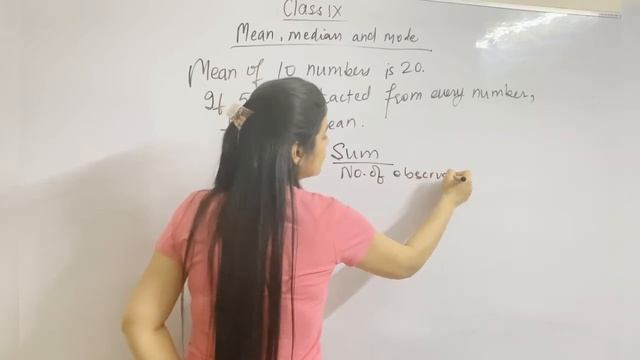 Class IX
Mean, median and mode
Mean of 10 numbers is 20.
If 5 from every number,
Sum
No. of